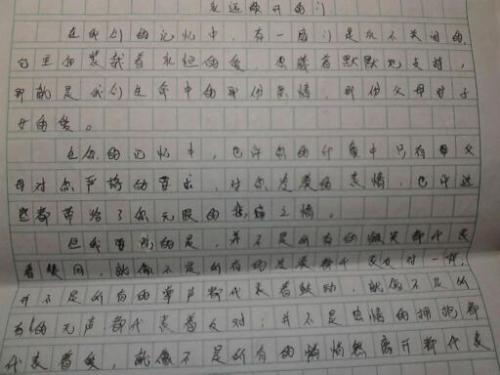 永远敞开的门
在我们的记忆中，有一扇门是永不关闭的，
它里面装载着永恒的爱，意味着默默地支持，
那就是我们生命中的那份亲情，那份父母对子
女的爱。
在你的记忆中，也许你的印象中只有父
母对你严格的要求，对你发表的表情，也许这
些都带给了你无限的之情。
但我要说的是，并不是所有的微笑都代表
着赞同，就像不是所有的发表都代表反对一样；
并不是所有的掌声都代表着鼓动，就像不是所
有的无声都代表着反对；并不是热情的拥抱都
代表着爱，就像不是所有的悄悄然离开都代表